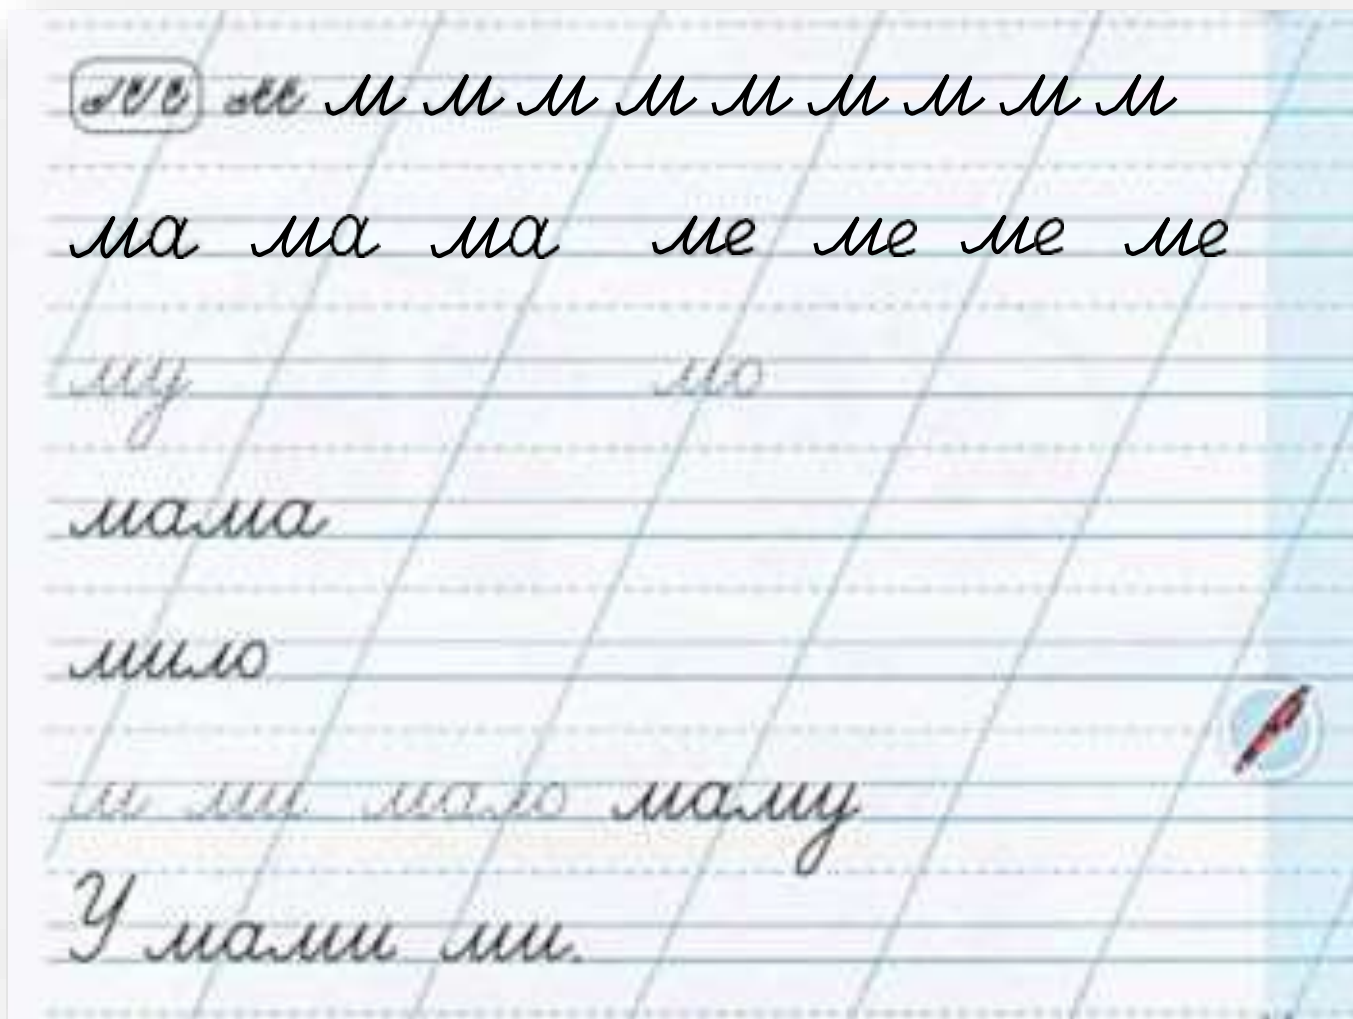 м м м м м м м м м м
ма ма ма ме ме ме ме
му мо
мама
мило
м ми мало маму
У мами ми.